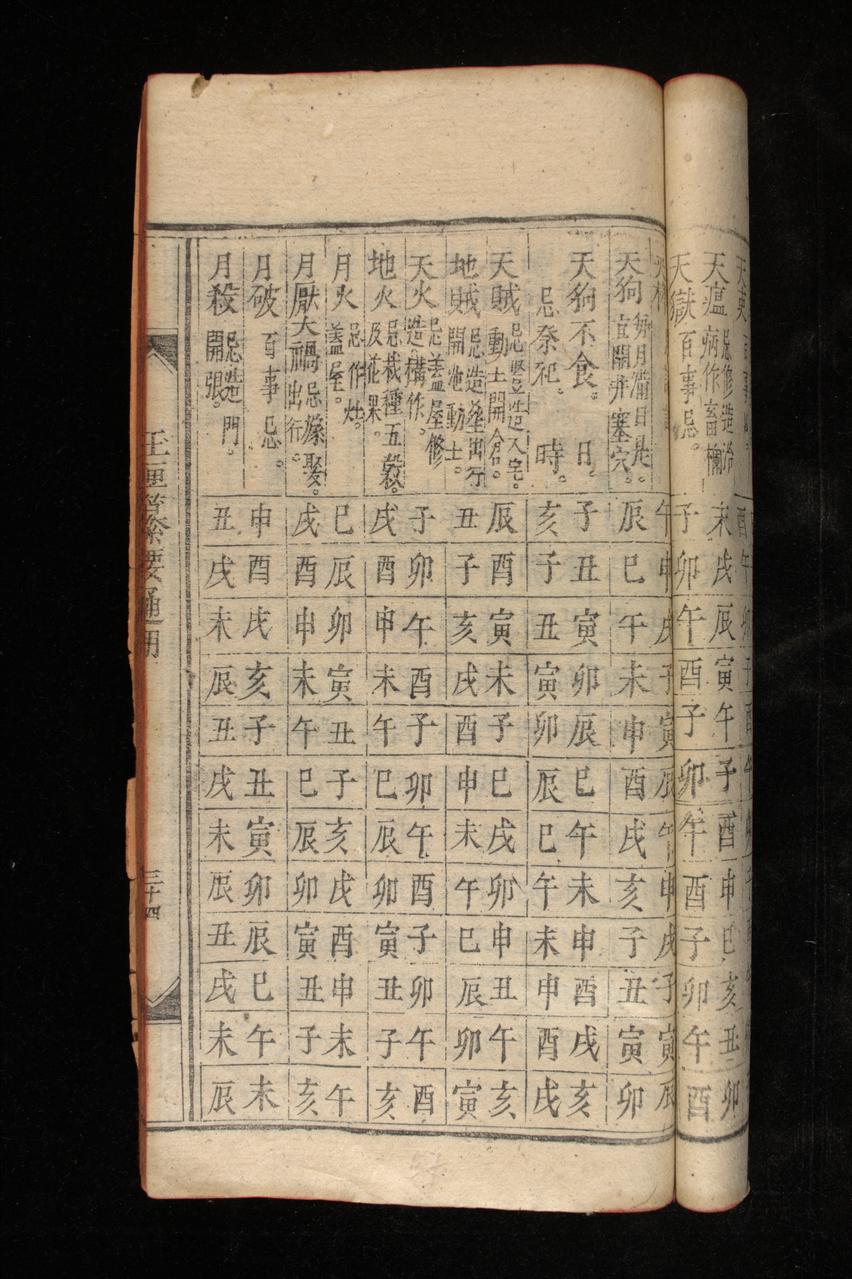 天瘟 忌修造治病作畜欄 未 戌 辰 寅 午 子 酉 申 巳 亥 丑 卯
天獄 百事忌。 子 卯 午 酉 子 卯 午 酉 子 卯 午 酉
午 申 戌 子 寅 辰 午 申 戌 子 寅 辰
天狗 每月滿日是。宜開井塞穴。 辰 巳 午 未 申 酉 戌 亥 子 丑 寅 卯
天狗不食。日。 子 丑 寅 卯 辰 巳 午 未 申 酉 戌 亥
忌祭祀。時。 亥 子 丑 寅 卯 辰 巳 午 未 申 酉 戌
天賊 忌竪造入宅。動土開倉。 辰 酉 寅 未 子 巳 戌 卯 申 丑 午 亥
地賊 忌造塟出行開池動土。 丑 子 亥 戌 酉 申 未 午 巳 辰 卯 寅
天火 忌蓋屋修造構作。 子 卯 午 酉 子 卯 午 酉 子 卯 午 酉
地火 忌栽種五穀。及花果。 戌 酉 申 未 午 巳 辰 卯 寅 丑 子 亥
月火 忌作灶。蓋屋。 巳 辰 卯 寅 丑 子 亥 戌 酉 申 未 午
月厭大禍 忌嫁娶。出行。 戌 酉 申 未 午 巳 辰 卯 寅 丑 子 亥
月破 百事忌。 申 酉 戌 亥 子 丑 寅 卯 辰 巳 午 未
月殺 忌造門。開張。 丑 戌 未 辰 丑 戌 未 辰 丑 戌 未 辰
要通用
三十四